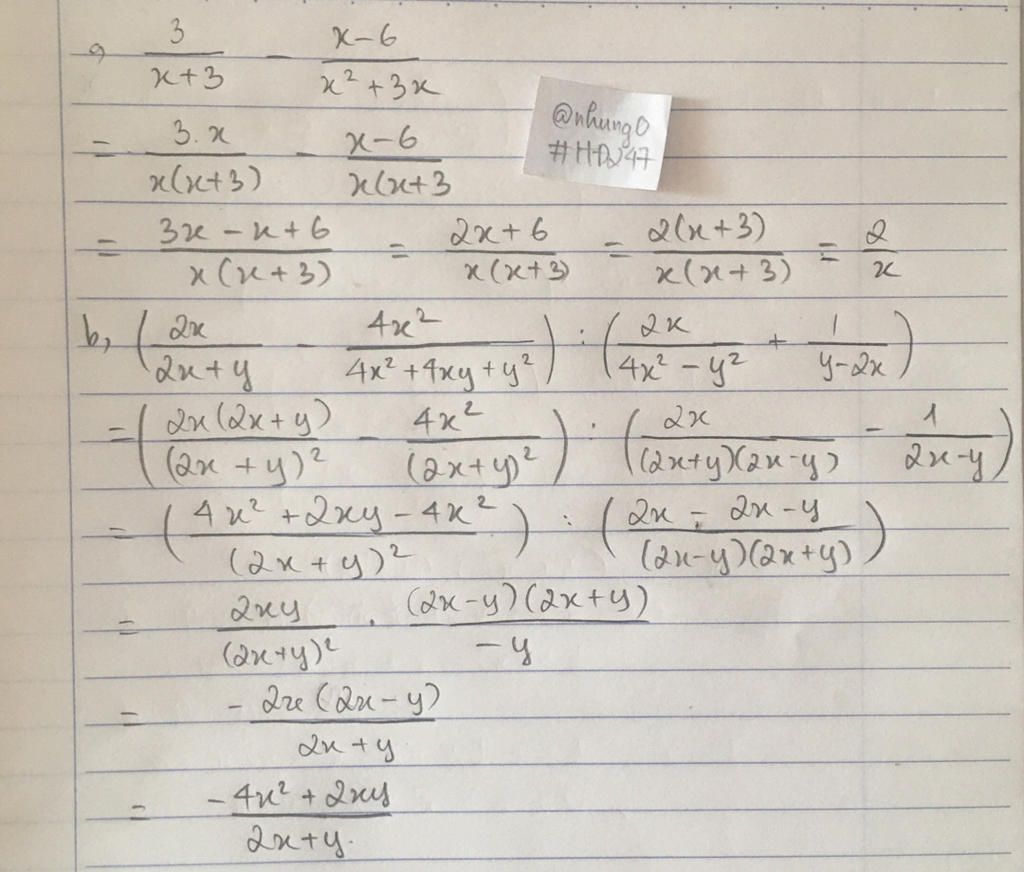 a, 3/(x+3) - (x-6)/(x²+3x)
= 3.x/(x(x+3)) - (x-6)/(x(x+3
@nhung0
= (3x-x+6)/(x(x+3)) = (2x+6)/(x(x+3)) = 2(x+3)/(x(x+3)) = 2/x
b, (2x/(2x+y) - 4x²/(4x²+4xy+y²)) : (2x/(4x²-y²) + 1/(y-2x))
= (2x(2x+y)/(2x+y)² - 4x²/(2x+y)²) : (2x/((2x+y)(2x-y)) - 1/(2x-y))
= ((4x²+2xy-4x²)/(2x+y)²) : ((2x-2x-y)/((2x-y)(2x+y)))
= 2xy/(2x+y)² . (2x-y)(2x+y)/(-y)
= -2x(2x-y)/(2x+y)
= (-4x²+2xy)/(2x+y).